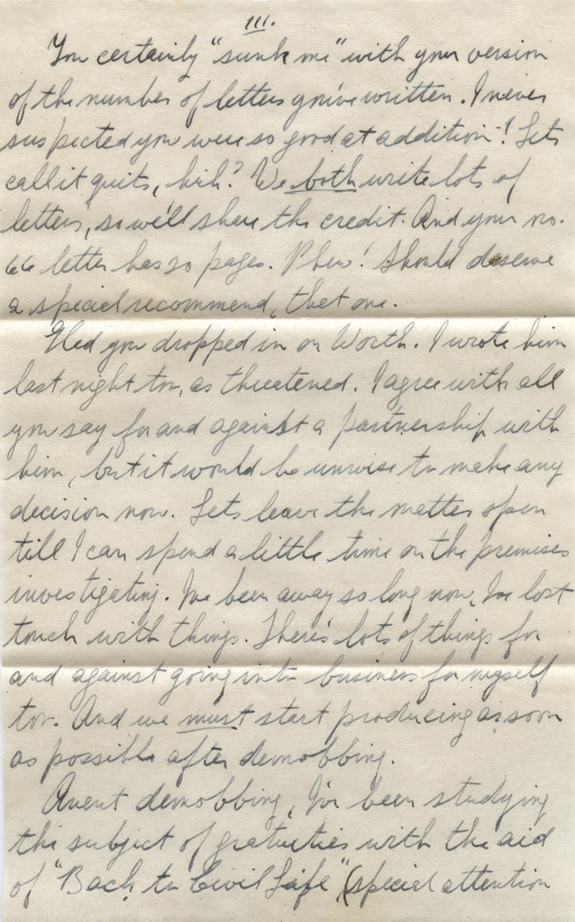 III.
You certainly "sunk me" with your version
of the number of letters you've written. I never
suspected you were so good at addition! Lets
call it quits, huh? We both write lots of
letters, so we'll share the credit. And your no.
66 letter has 20 pages. Phew! Should deserve
a special recommend, that one.
Glad you dropped in on Worth. I wrote him
last night too, as threatened. I agree with all
you say for and against a partnership with
him, but it would be unwise to make any
decision now. Lets leave the matter open
till I can spend a little time on the premises
investigating. I've been away so long now, I've lost
touch with things. There's lots of things for
and against going into business for myself
too. And we must start producing as soon
as possible after demobbing.
Anent demobbing, I've been studying
the subject of gratuities with the aid
of "Back to Civil Life" (special attention